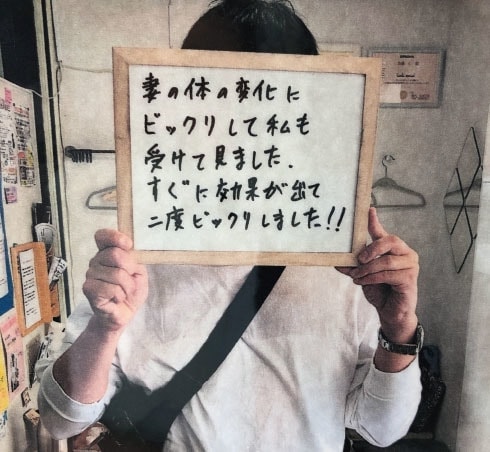 妻の体の変化に
ビックリして私も
受けて見ました.
すぐに効果が出て
二度ビックリしました!!